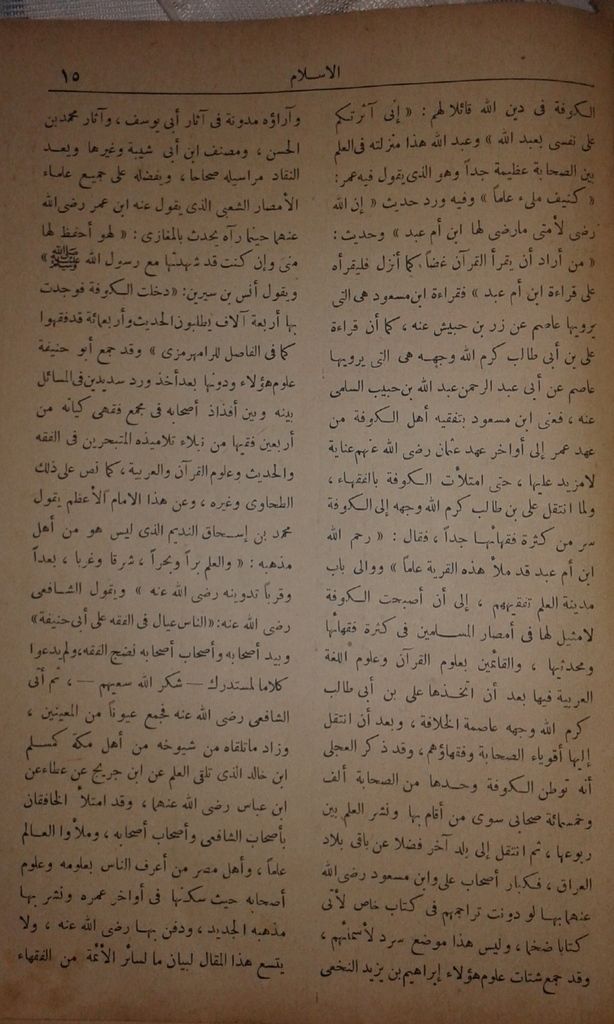 الاسلام
١٥
الكوفة فى دين الله قائلا لهم : « إنى آثرتكم
على نفسى بعبد الله » وعبد الله هذا منزلته فى العلم
بين الصحابة عظيمة جداً وهو الذى يقول فيه عمر :
« كنيف ملىء علماً » وفيه ورد حديث « إن الله
رضى لأمتى مارضى لها ابن أم عبد » وحديث :
« من أراد أن يقرأ القرآن غضاً كما أنزل فليقرأه
على قراءة ابن أم عبد » فقراءة ابن مسعود هى التى
يرويها عاصم عن زر بن حبيش عنه ، كما أن قراءة
على بن أبى طالب كرم الله وجهه هى التى يرويها
عاصم عن أبى عبد الرحمن عبد الله بن حبيب السلمى
عنه ، فعنى ابن مسعود بتفقيه أهل الكوفة من
عهد عمر إلى أواخر عهد عثمان رضى الله عنهم عناية
لامزيد عليها ، حتى امتلأت الكوفة بالفقهاء ،
ولما انتقل على بن طالب كرم الله وجهه إلى الكوفة
سر من كثرة فقهائها جداً ، فقال : « رحم الله
ابن أم عبد قد ملأ هذه القرية علماً » ووالى باب
مدينة العلم تفقيههم ، إلى أن أصبحت الكوفة
لامثيل لها فى أمصار المسلمين فى كثرة فقهائها
ومحدثيها ، والقائمين بعلوم القرآن وعلوم اللغة
العربية فيها بعد أن اتخذها على بن أبى طالب
كرم الله وجهه عاصمة الخلافة ، وبعد أن انتقل
إليها أقوياء الصحابة وفقهاؤهم ، وقد ذكر العجلى
أنه توطن الكوفة وحدها من الصحابة ألف
وخمسمائة صحابى سوى من أقام بها ونشر العلم بين
ربوعها ، ثم انتقل إلى بلد آخر فضلا عن باقى بلاد
العراق ، فكبار أصحاب على وابن مسعود رضى الله
عنهما بها لو دونت تراجمهم فى كتاب خاص لأتى
كتابا ضخما ، وليس هذا موضع سرد لأسمائهم ،
وقد جمع شتات علوم هؤلاء إبراهيم بن يزيد النخعى
وآراؤه مدونة فى آثار أبى يوسف ، وآثار محمد بن
الحسن ، ومصنف ابن أبى شيبة وغيرها ويعد
النقاد مراسيله صحاحا ، ويفضله على جميع علماء
الأمصار الشعبى الذى يقول عنه ابن عمر رضى الله
عنهما حينما رآه يحدث بالمغازى : « لهو أحفظ لها
منى وإن كنت قد شهدتها مع رسول الله ﷺ »
ويقول أنس بن سيرين : « دخلت الكوفة فوجدت
بها أربعة آلاف يطلبون الحديث وأربعمائة قد فقهوا
كما فى الفاصل للرامهرمزى » وقد جمع أبو حنيفة
علوم هؤلاء ودونها بعد أخذ ورد سديدين فى المسائل
بينه وبين أفذاذ أصحابه فى مجمع فقهى كيانه من
أربعين فقيها من نبلاء تلاميذه المتبحرين فى الفقه
والحديث وعلوم القرآن والعربية ، كما نص على ذلك
الطحاوى وغيره ، وعن هذا الامام الأعظم يقول
محمد بن إسحاق النديم الذى ليس هو من أهل
مذهبه : « والعلم براً وبحراً ، شرقا وغربا ، بعداً
وقرباً تدوينه رضى الله عنه » ويقول الشافعى
رضى الله عنه : « الناس عيال فى الفقه على أبى حنيفة »
وبيد أصحابه وأصحاب أصحابه نضج الفقه ، ولم يدعوا
كلاما لمستدرك — شكر الله سعيهم — ، ثم أتى
الشافعى رضى الله عنه فجمع عيوناً من المعينين ،
وزاد ماتلقاه من شيوخه من أهل مكة كمسلم
ابن خالد الذى تلقى العلم عن ابن جريج عن عطاء عن
ابن عباس رضى الله عنهما ، وقد امتلأ الخافقان
بأصحاب الشافعى وأصحاب أصحابه ، وملأوا العالم
علماً ، وأهل مصر من أعرف الناس بعلومه وعلوم
أصحابه حيث سكنها فى أواخر عمره ونشر بها
مذهبه الجديد ، ودفن بها رضى الله عنه ، ولا
يتسع هذا المقال لبيان ما لسائر الأئمة من الفقهاء